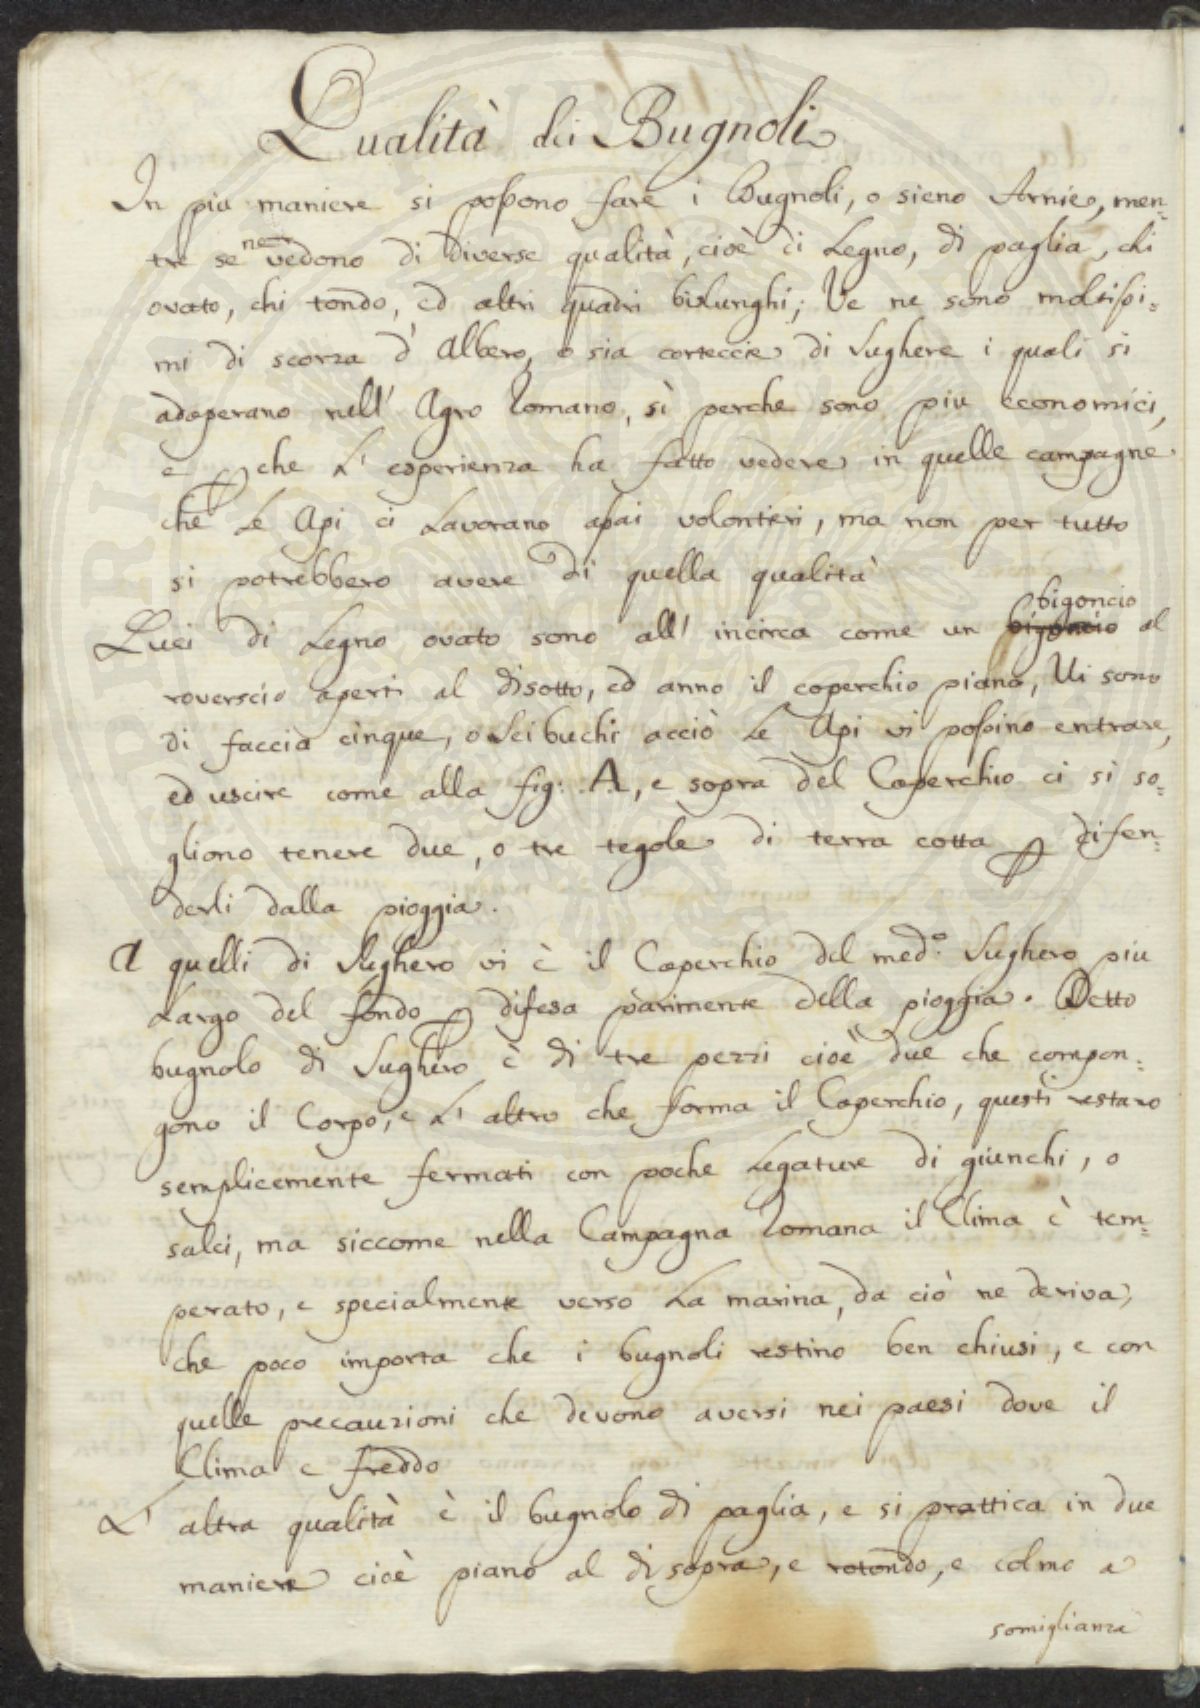 Qualità dei Bugnoli
In piu maniere si possono fare i Bugnoli, o sieno Arnie, men=
tre se ne vedono di diverse qualità, cioè di Legno, di paglia, chi
ovato, chi tondo, ed altri quadri bislunghi; Ve ne sono moltissi=
mi di scorza d' Albero, o sia corteccie di Sughere i quali si
adoperano nell' Agro Romano, sì perche sono piu economici,
e ꝑ che L' esperienza ha fatto vedere in quelle campagne
che Le Api ci Lavorano assai volontieri, ma non per tutto
si potrebbero avere di quella qualità
Quei di Legno ovato sono all' incirca come un bigoncio bigoncio al
roverscio aperti al disotto, ed anno il coperchio piano, Vi sono
di faccia cinque, o Sei buchi acciò Le Api vi possino entrare,
ed uscire come alla fig: A, e sopra del Coperchio ci si so=
gliono tenere due, o tre tegole di terra cotta ꝑ difen=
derli dalla pioggia.
A quelli di Sughero vi è il Coperchio del med.º Sughero piu
Largo del fondo ꝑ difesa parimente della pioggia. Detto
bugnolo di Sughero è di tre pezzi cioè due che compon=
gono il Corpo, e L' altro che forma il Coperchio, questi restano
semplicemente fermati con poche Legature di giunchi, o
salci, ma siccome nella Campagna Romana il Clima è tem=
perato, e specialmente verso La marina, da ciò ne deriva,
che poco importa che i bugnoli restino ben chiusi, e con
quelle precauzioni che devono aversi nei paesi dove il
Clima e freddo
L' altra qualità è il bugnolo di paglia, e si prattica in due
maniere cioè piano al di sopra, e rotondo, e colmo a
somiglianza